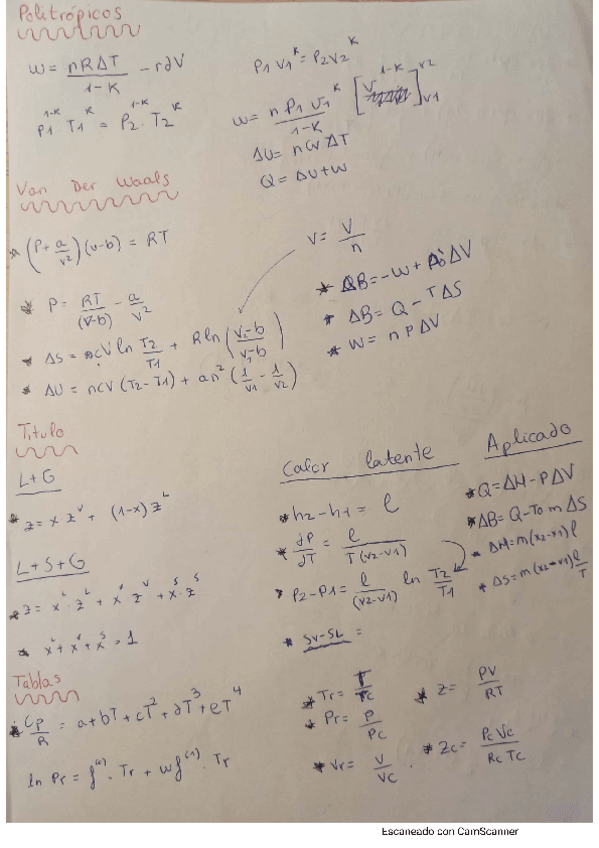 Politrópicos
w = nRΔT / 1-K - r∂V
P1 V1^K = P2 V2^K
P1^1-K T1^K = P2^1-K · T2^K
w = n P1 V1^K / 1-K [V^1-K]V1^V2
ΔU = n CV ΔT
Q = ΔU + W
Van Der Waals
* (P + a/v²)(v-b) = RT
V = V/n
* P = RT/(V-b) - a/v²
* ΔS = ncV ln T2/T1 + R ln (V2-b / V1-b)
* ΔU = ncV (T2-T1) + an² (1/V1 - 1/V2)
* ΔB = -W + P0 ΔV
* ΔB = Q - T ΔS
* W = n P ΔV
Titulo
L+G
* z = x z^V + (1-x) z^L
L+S+G
* z = x^L · z^L + x^V z^V + x^S · z^S
* x^L + x^V + x^S = 1
Calor latente
* h2 - h1 = l
* ∂P/∂T = l / T(V2-V1)
* P2 - P1 = l / (V2-V1) ln T2/T1
* SV-SL =
Aplicado
* Q = ΔH - PΔV
* ΔB = Q - To m ΔS
* ΔH = m(x2-x1) l
* ΔS = m(x2-x1) l/T
Tablas
* CP/R = a + bT + cT² + ∂T³ + eT⁴
ln Pr = f^(0) · Tr + w f^(1) · Tr
* Tr = T/Tc
* Pr = P/Pc
* Vr = V/Vc
* Z = PV/RT
* Zc = Pc Vc / Rc Tc
Escaneado con CamScanner